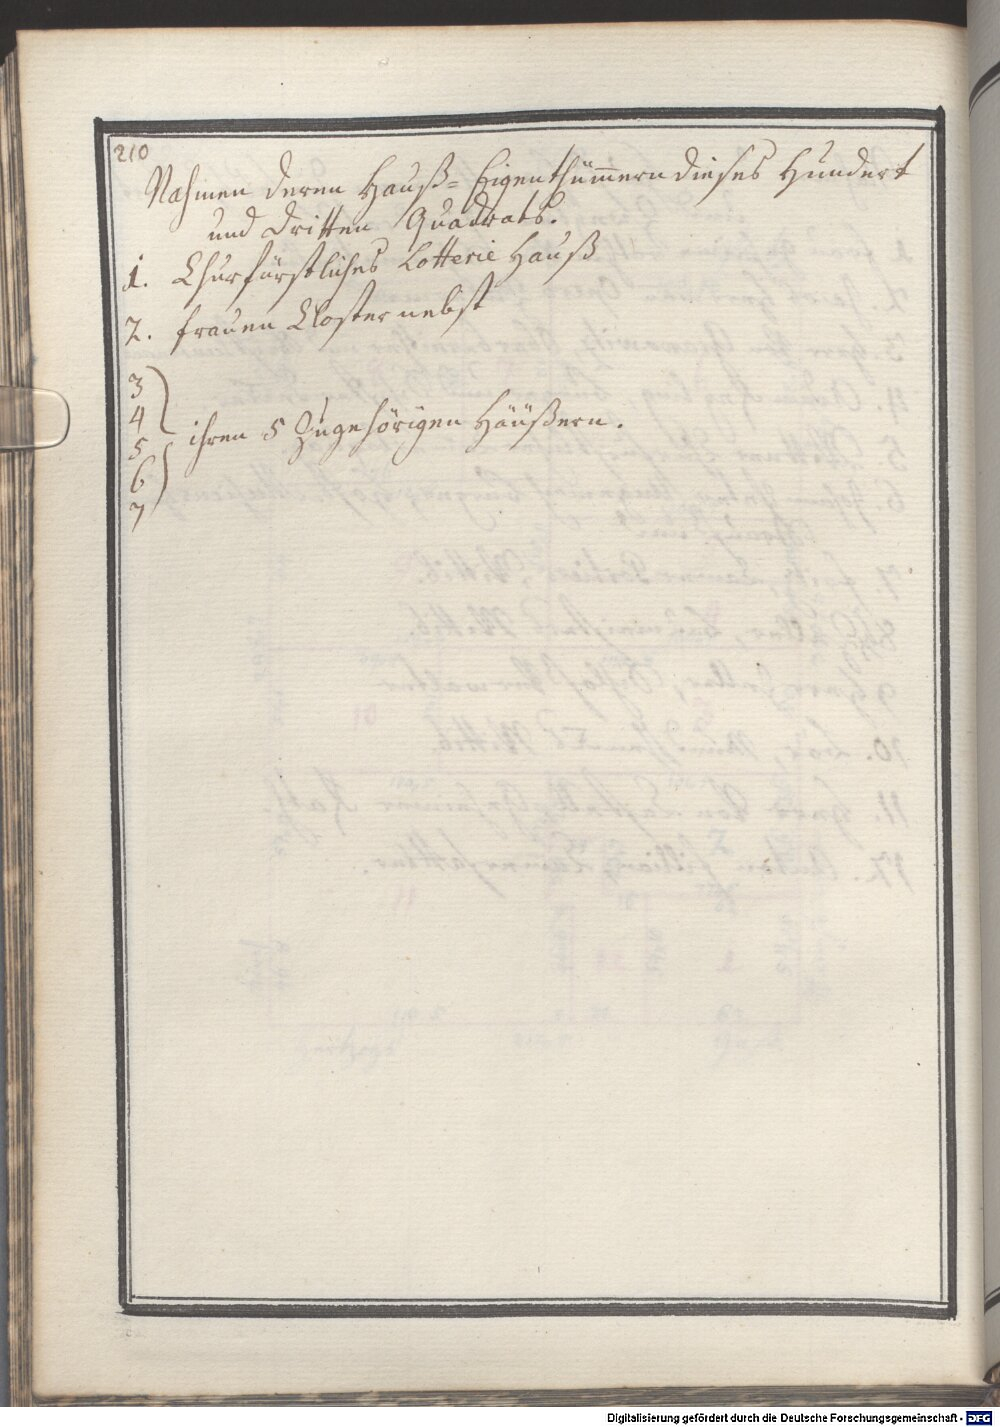 210
Nahmen deren Hauß=Eigenthümmern dieses Hundert
und dritten Quadrats.
1. Churfürstliches Lotterie Hauß
2. frauen Closter nebst
3
4
5 ihren 5 Zugehörigen Häußern.
6
7
Digitalisierung gefördert durch die Deutsche Forschungsgemeinschaft - DFG